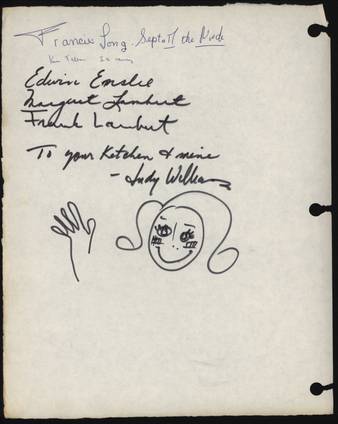 Francis Long - Sept 17 the Nude
Edwin Emslie
Margaret Lambert
Frank Lambert
To your Kitchen & mine
- Judy Williams